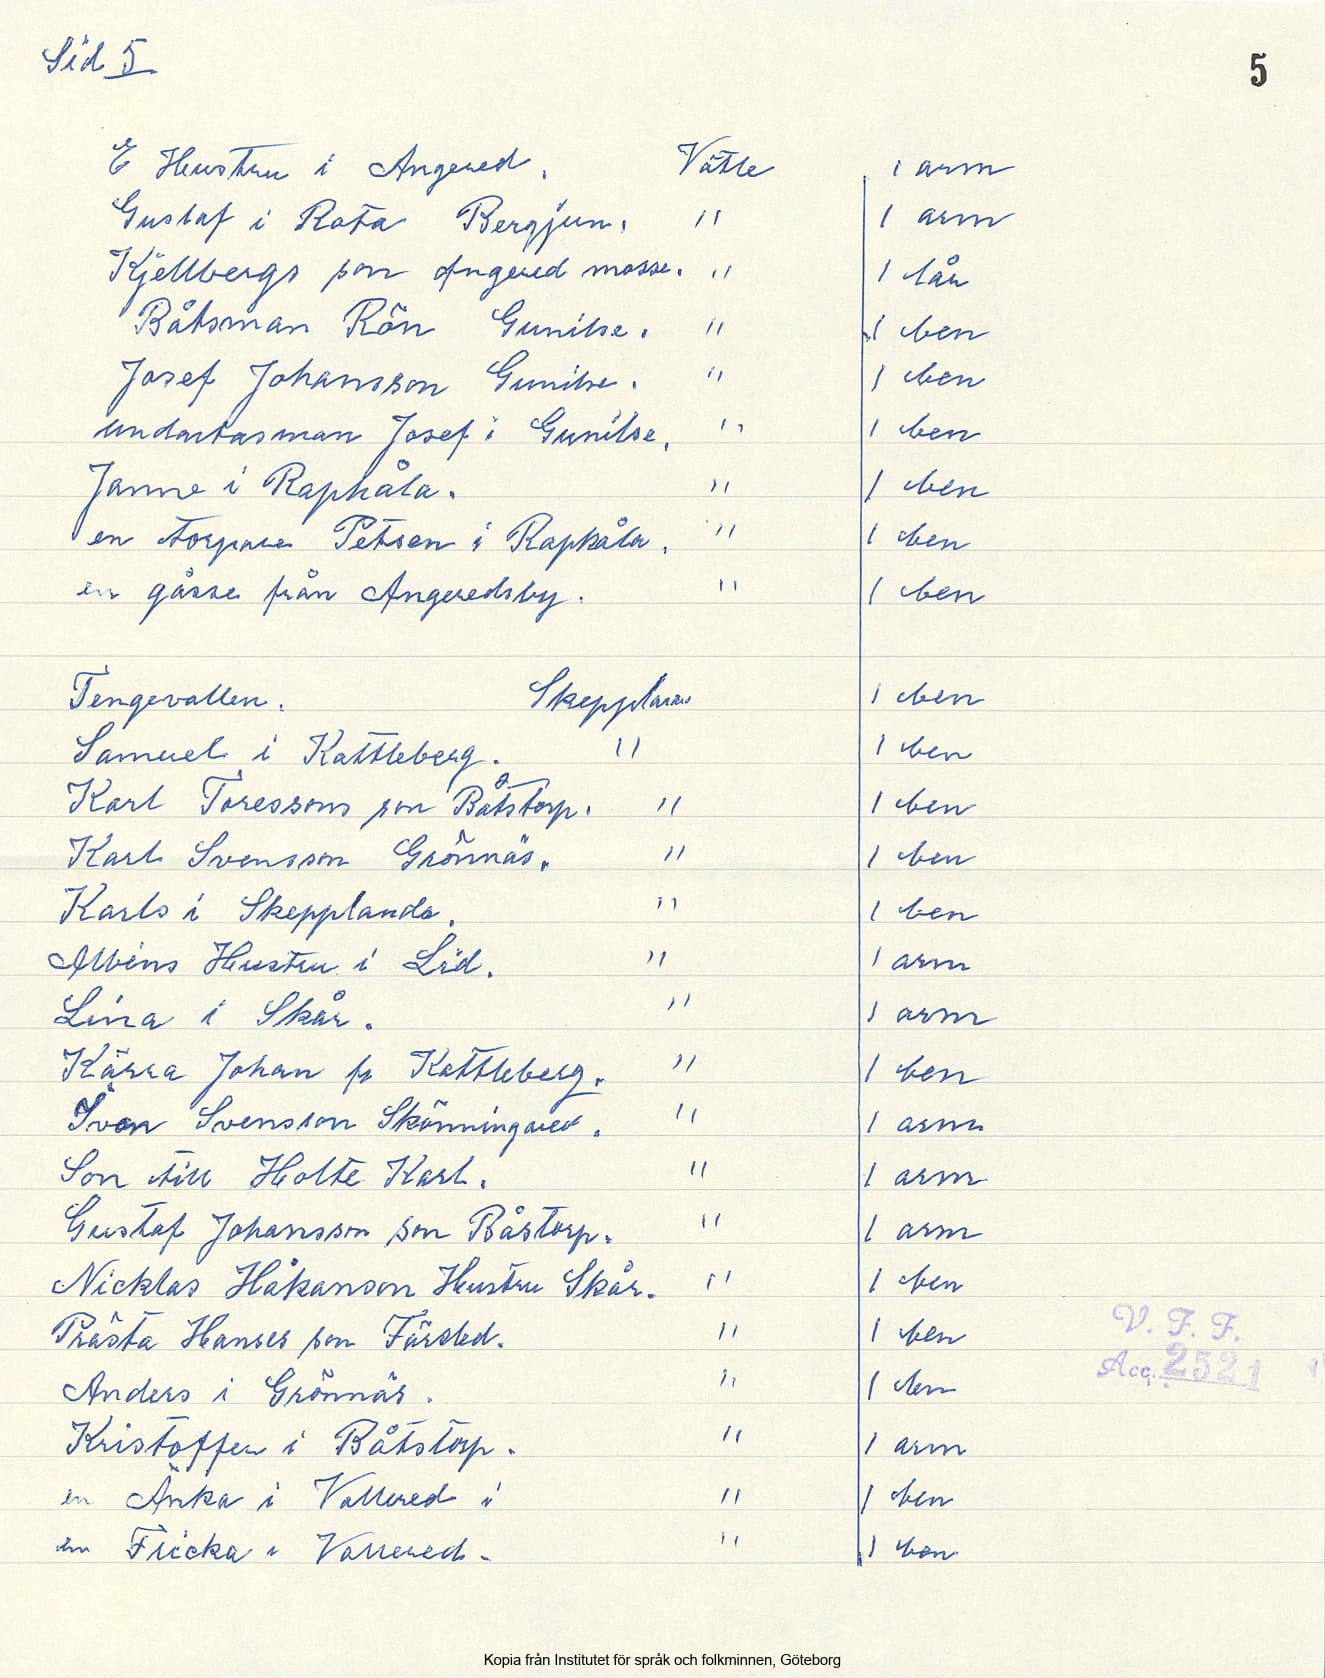 Sid 5
5
E Hustru i Angered. Vätle 1 arm
Gustaf i Rota Bergjun. " 1 arm
Kjellbergs son Angered mosse. " 1 lår
Båtsman Rön Gunilse. " 1 ben
Josef Johansson Gunilse. " 1 ben
undartasman Josef i Gunilse. " 1 ben
Janne i Rapkåla. " 1 ben
en torpare Petsen i Rapkåla. " 1 ben
en gåsse från Angeredsby. " 1 ben
Tengevallen. Skepplanda 1 ben
Samuel i Kattleberg. " 1 ben
Karl Toressons son Båtstorp. " 1 ben
Karl Svensson Grönnäs. " 1 ben
Karls i Skepplanda. " 1 ben
Albins Hustru i Lid. " 1 arm
Lina i Skår. " 1 arm
Kärra Johan fr Kattleberg. " 1 ben
Ivan Svensson Skönningared. " 1 arm
Son till Holte Karl. " 1 arm
Gustaf Johansson son Båstorp. " 1 arm
Nicklas Håkanson Hustru Skår. " 1 ben
Prästa Hanses son Färsled. " 1 ben
V. F. F.
Acc. 2521
Anders i Grönnäs. " 1 ben
Kristoffer i Båtstorp. " 1 arm
en Änka i Vallered i " 1 ben
en Flicka i Vallered. " 1 ben
Kopia från Institutet för språk och folkminnen, Göteborg